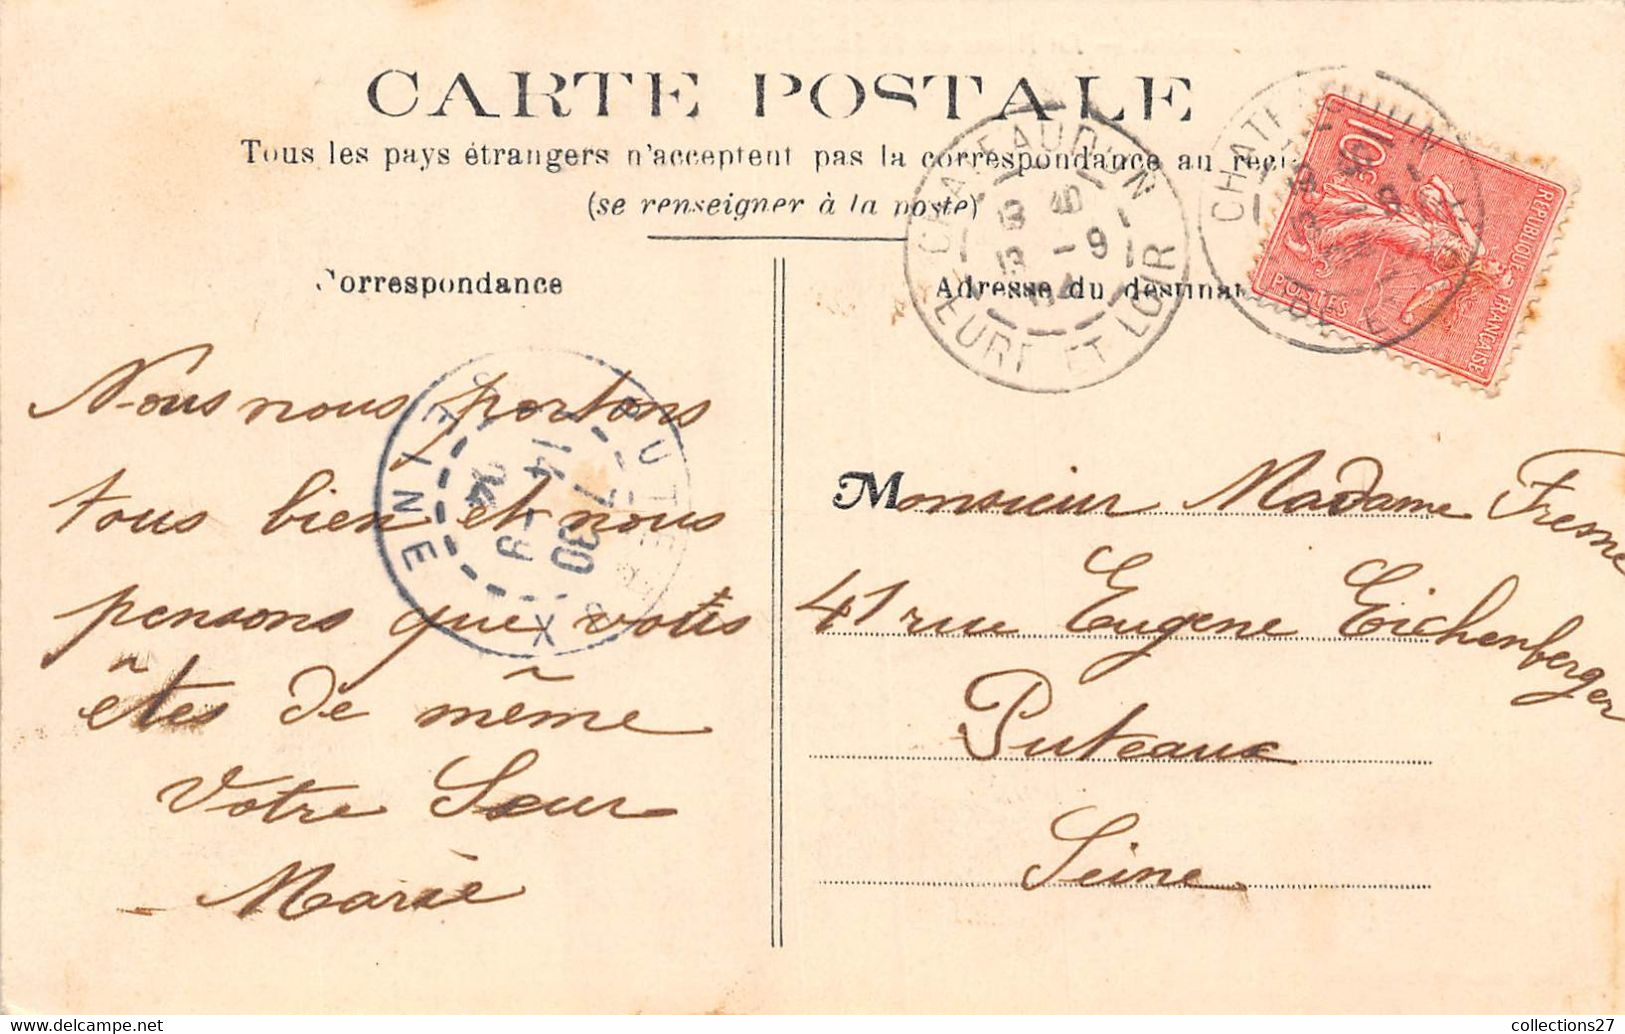 CARTE POSTALE
Tous les pays étrangers n'acceptent pas la correspondance au
(se renseigner à la poste)
Correspondance
Adresse du
CHATEAUDUN
EURE ET LOIR
13 -9
CHATEAUDUN
10c
REPUBLIQUE FRANÇAISE
POSTES
PUTEAUX
SEINE
7 30
14 -9
Nous nous portons
tous bien et nous
pensons que vous
êtes de même
Votre Sœur
Marie
Monsieur Madame Fresne
41 rue Eugene Eichenberger
Puteaux
Seine
collections27